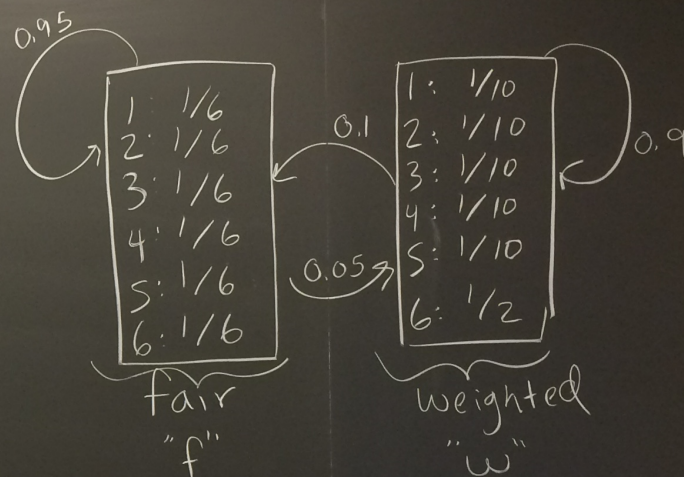 0.95
1: 1/6
2: 1/6
3: 1/6
4: 1/6
5: 1/6
6: 1/6
fair
"f"
0.1
0.05
1: 1/10
2: 1/10
3: 1/10
4: 1/10
5: 1/10
6: 1/2
weighted
"w"
0.9